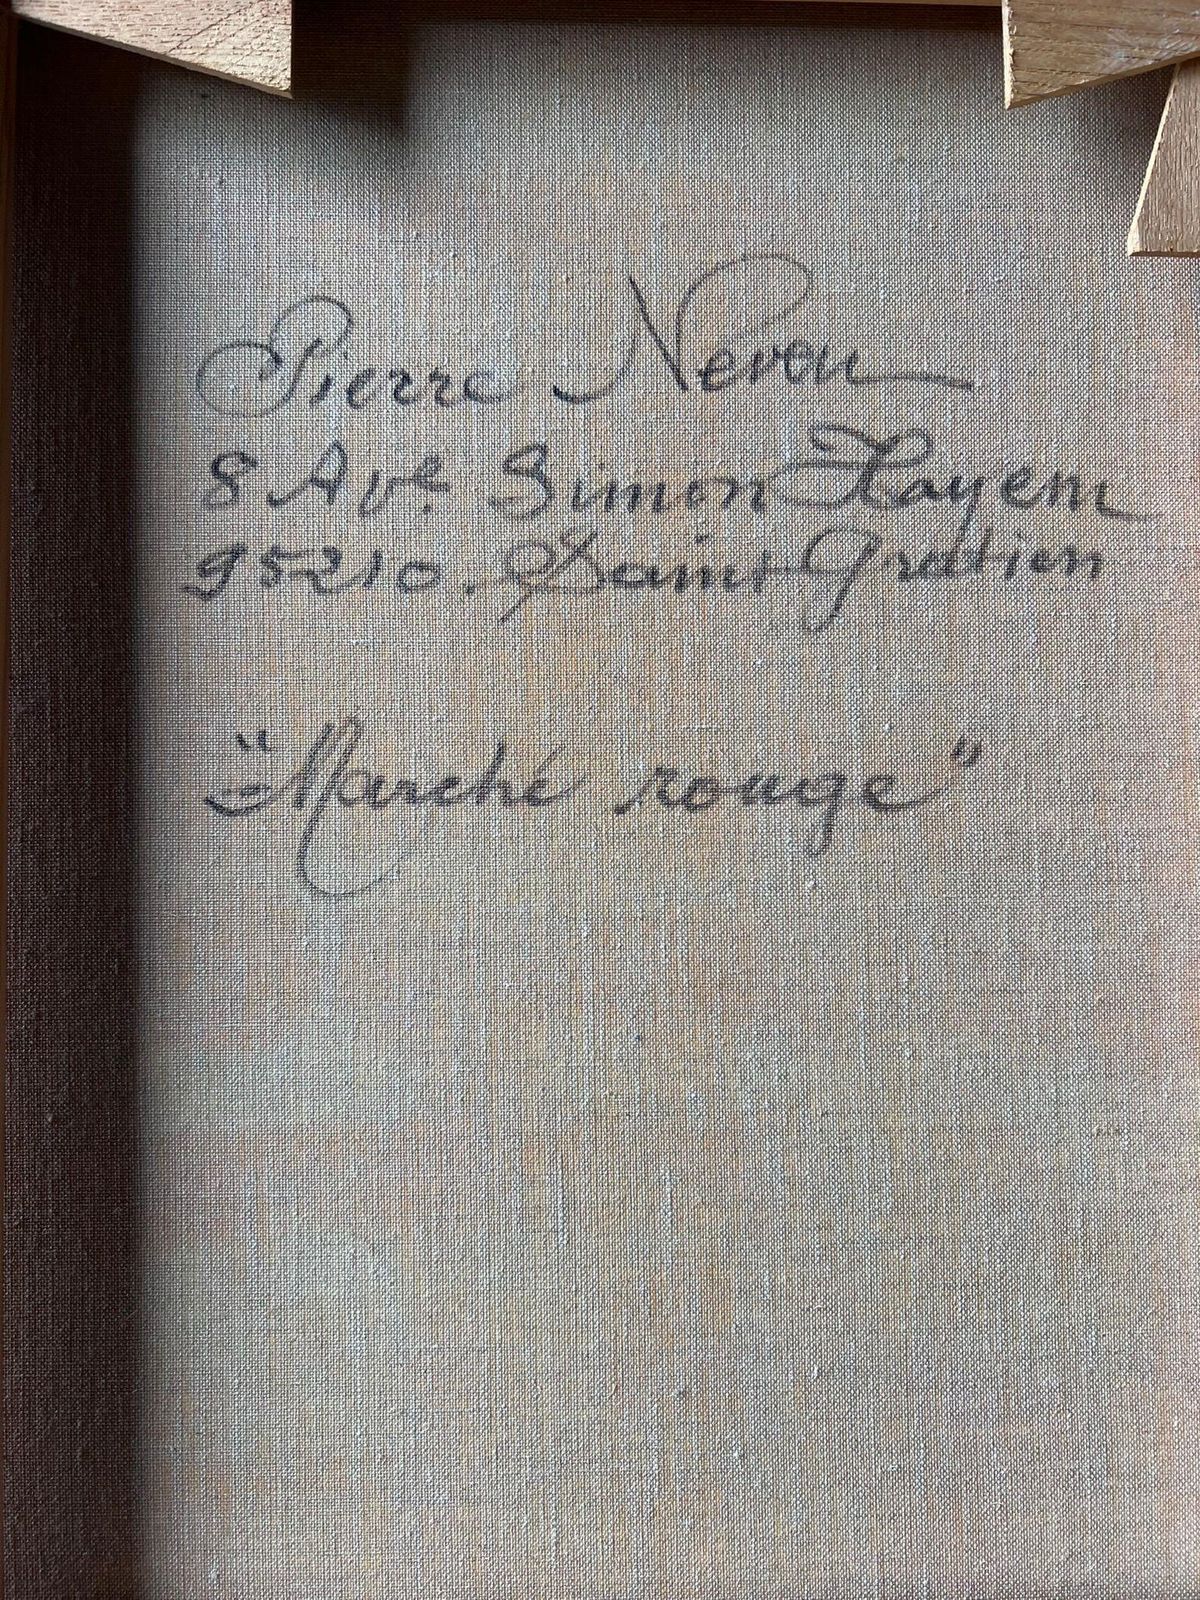 Pierre Neveu
8 Ave. Simon Hayem
95210. Saint Gratien
"Marché rouge"